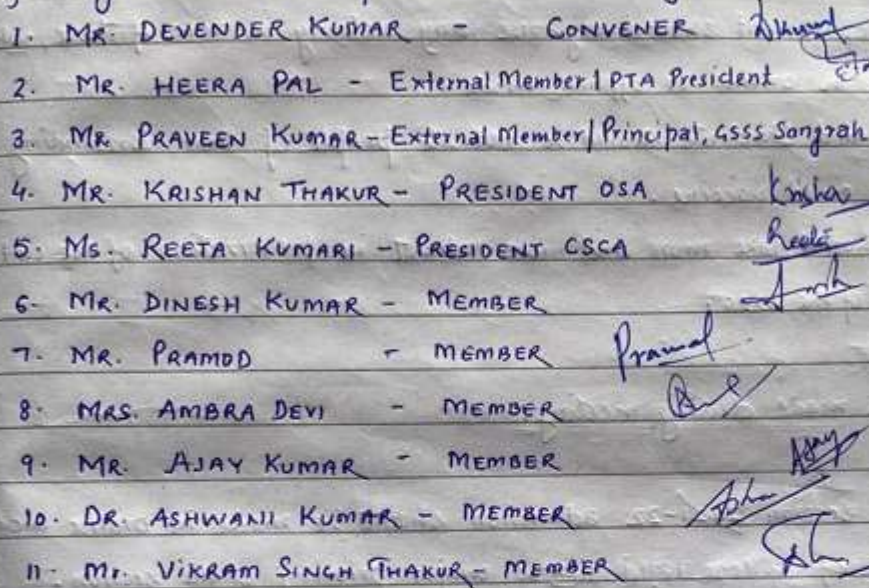 1. MR. DEVENDER KUMAR - CONVENER
2. MR. HEERA PAL - External Member | PTA President
3. MR PRAVEEN KUMAR - External Member | Principal, GSSS Sangrah
4. MR. KRISHAN THAKUR - PRESIDENT OSA Krishan
5. MS. REETA KUMARI - PRESIDENT CSCA Reeta
6. MR. DINESH KUMAR - MEMBER
7. MR. PRAMOD - MEMBER Pramod
8. MRS. AMBRA DEVI - MEMBER
9. MR. AJAY KUMAR - MEMBER Ajay
10. DR. ASHWANI KUMAR - MEMBER
11. Mr. VIKRAM SINGH THAKUR - MEMBER